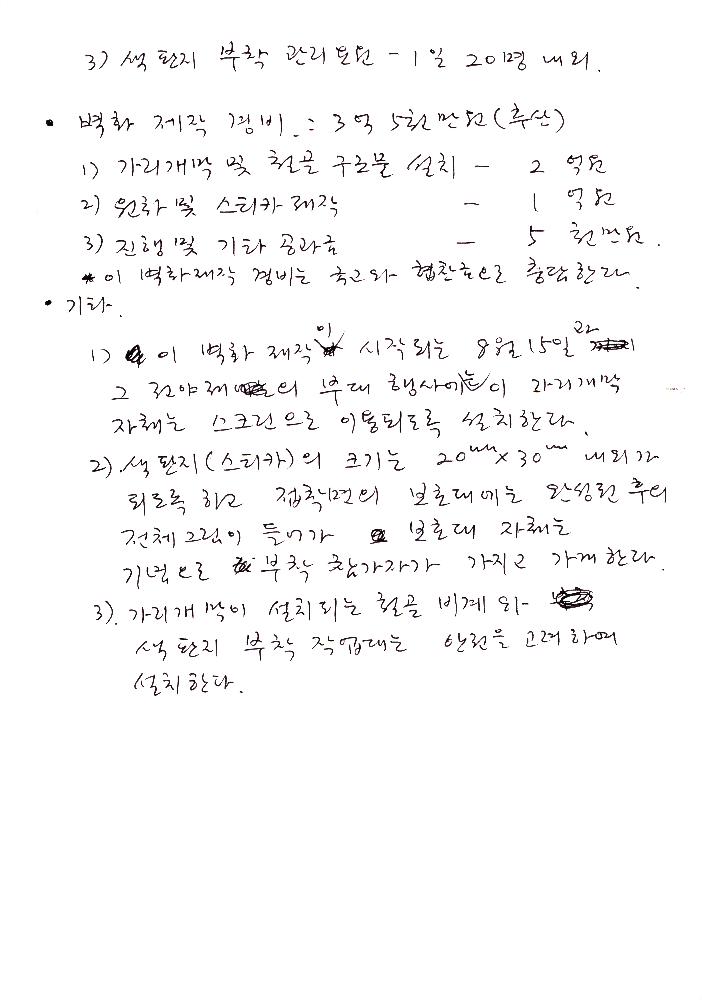 3) 색판지 부착 관리요원 - 1일 20명 내외.
• 벽화 제작 경비 : 3억 5천만원(추산)
1) 가리개막 및 철골 구조물 설치 - 2 억원
2) 원화 및 스티카 제작 - 1 억원
3) 진행 및 기타 공과금 - 5 천만원.
* 이 벽화제작 경비는 국고와 협찬금으로 충당한다.
• 기타.
1) 이 벽화 제작이 시작되는 8월 15일과
그 전야제의 부대 행사에는 이 가리개막
자체는 스크린으로 이용되도록 설치한다.
2). 색판지(스티카)의 크기는 20mm x 30mm 내외가
되도록 하고 접착면의 보호대에는 완성된 후의
전체그림이 들어가 보호대 자체는
기념으로 부착 참가자가 가지고 가게 한다.
3). 가리개막이 설치되는 철골 비계와
색판지 부착 작업대는 안전을 고려하여
설치한다.